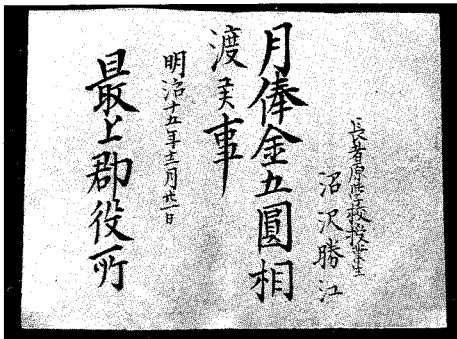 長者原学校授業生
沼沢勝江
月俸金五圓相
渡候事
明治十五年十二月廿一日
最上郡役所